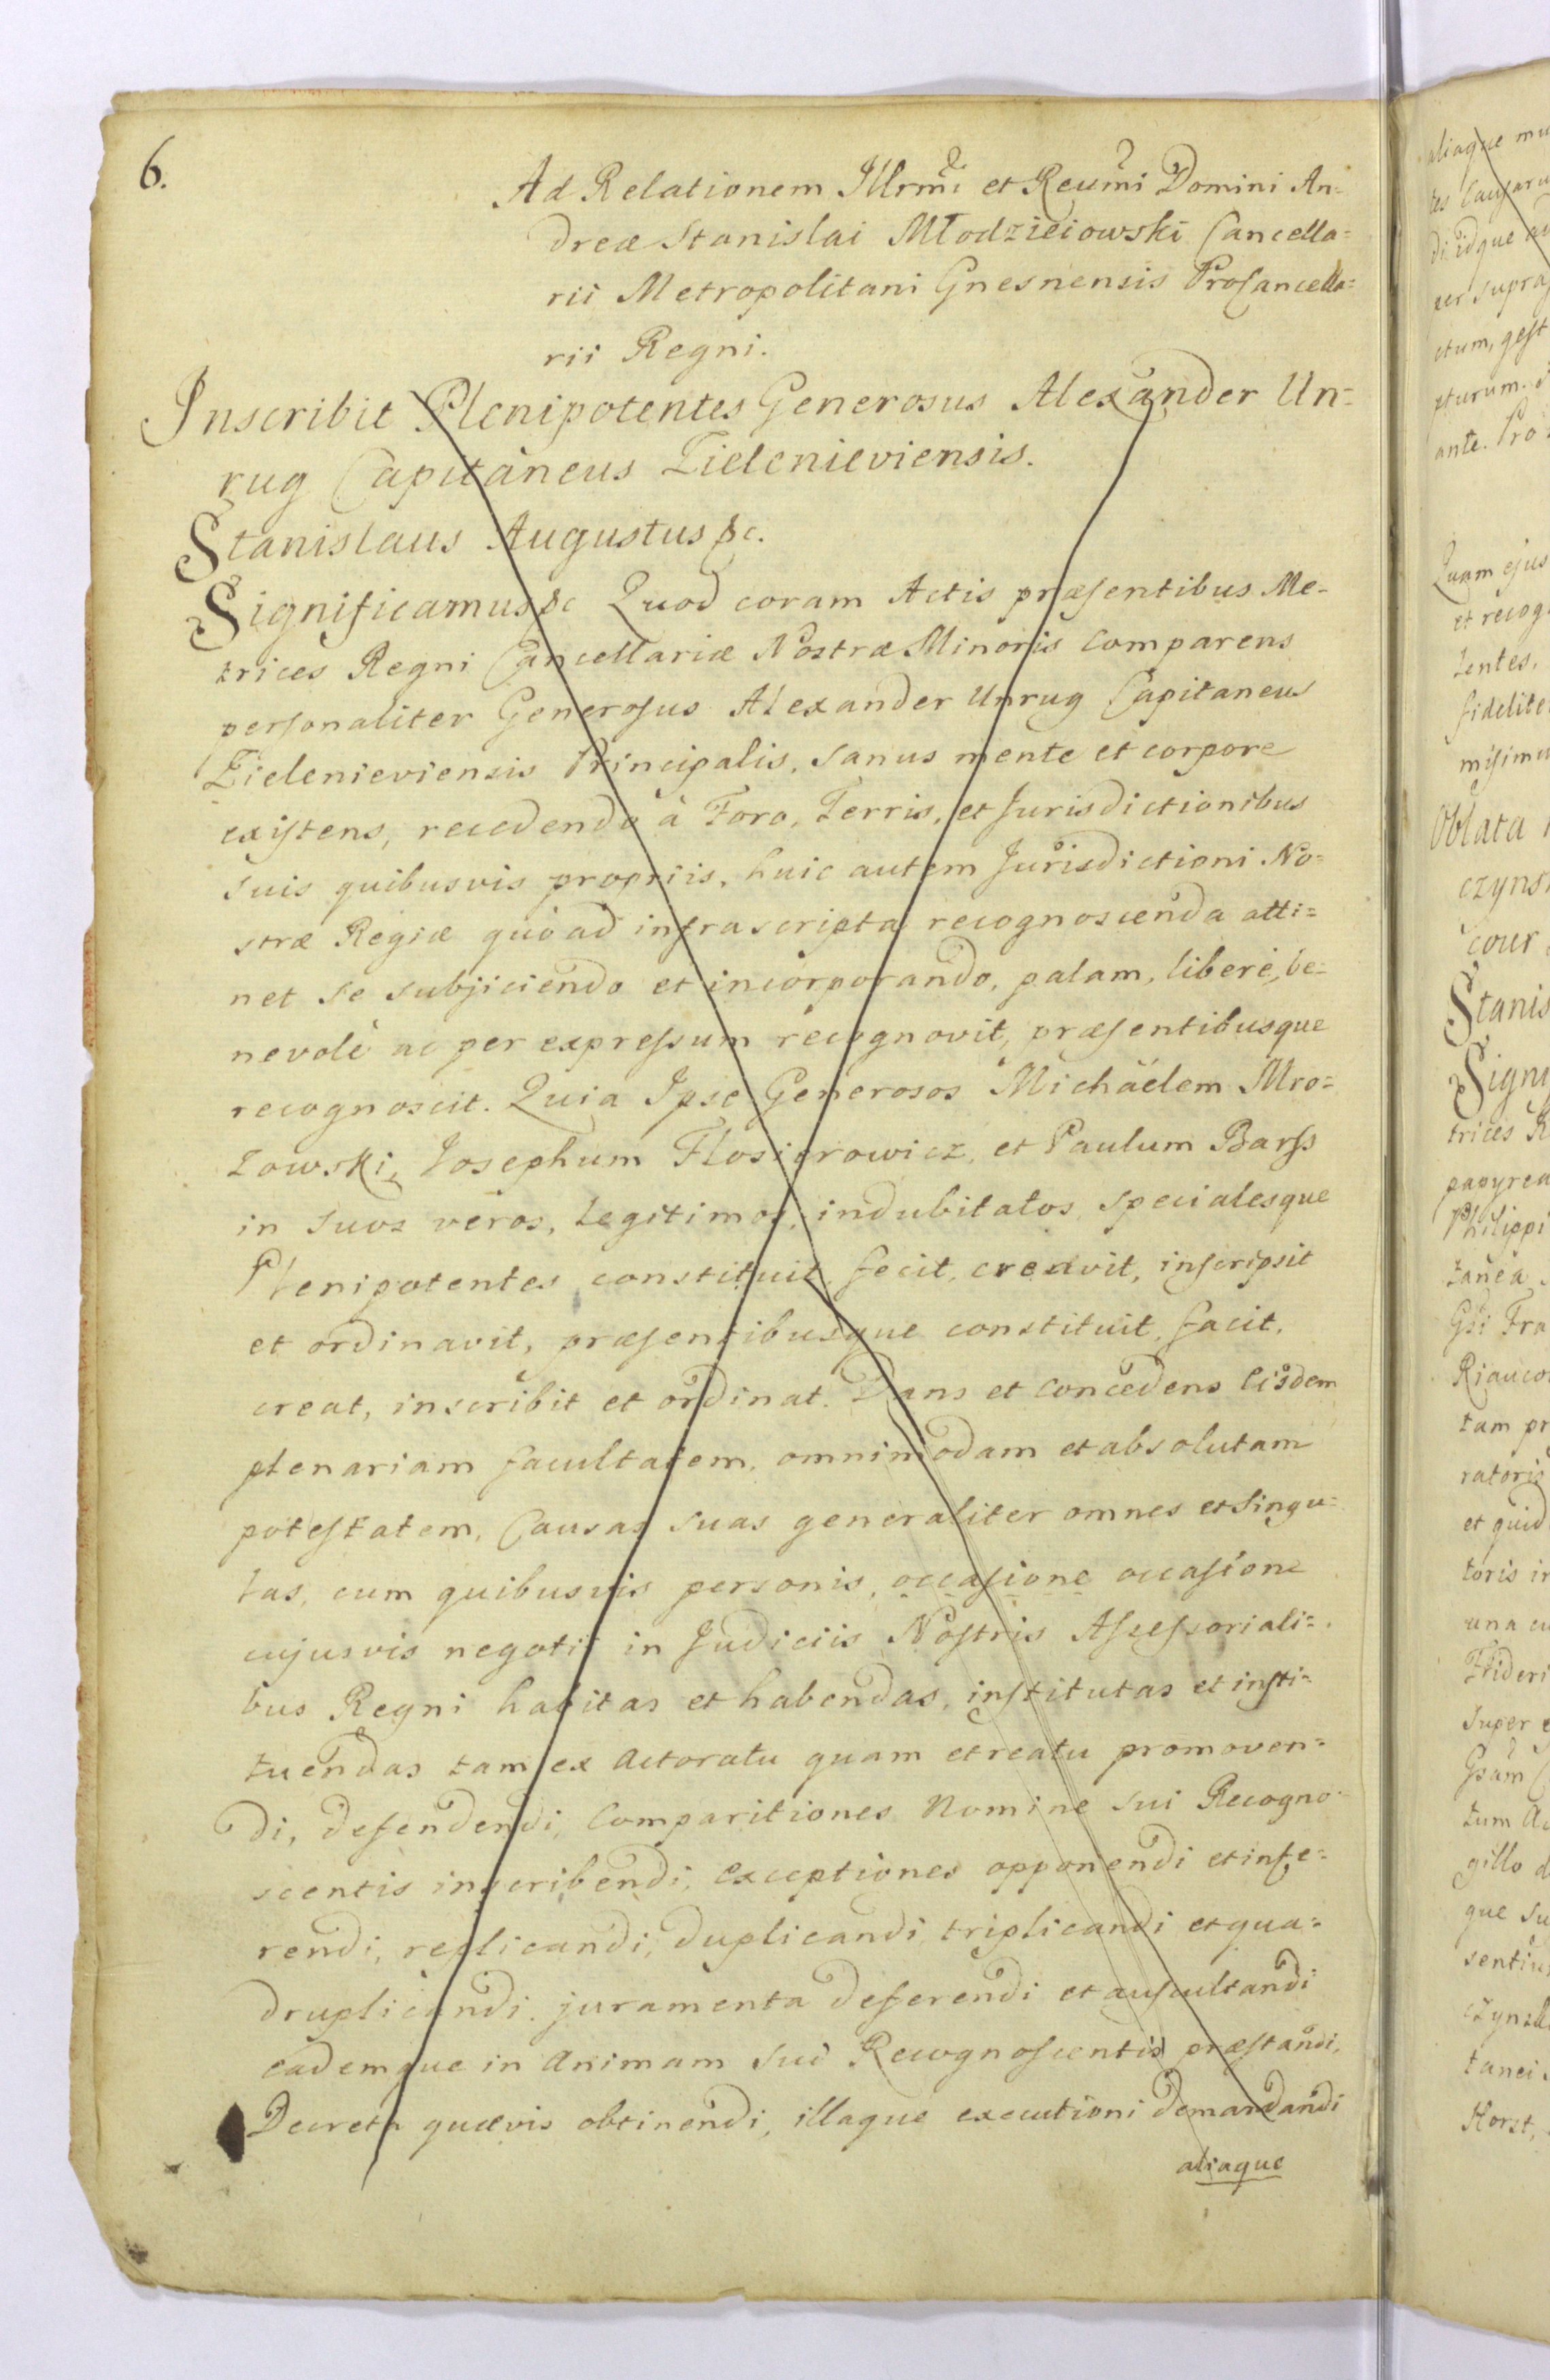 6.
Ad Relationem Illrmi et Reumi Domini An=
dreæ Stanislai Młodzieiowski Cancella=
rii Metropolitani Gnesnensis ProCancella=
rii Regni.
Inscribit Plenipotentes Generosus Alexander Un=
rug Capitaneus Zielenieviensis.
Stanislaus Augustus &c.
Significamus &c Quod coram Actis præsentibus Me-
trices Regni Cancellariæ Nostræ Minoris Comparens
personaliter Generosus Alexander Unrug Capitaneus
Zielenieviensis Principalis, sanus mente et corpore
existens, recedendo à Foro, Terris, et Jurisdictionibus
suis quibusvis propriis, huic autem Jurisdictioni No=
stræ Regiæ quò ad infrascripta recognoscenda atti=
net se subjiciendo et incorporando, palam, liberè, be=
nevolè ac per expressum recognovit, præsentibusque
recognoscit. Quia Ipse Generosos Michäelem Mro=
zowski, Josephum Flosierowicz, et Paulum Barss
in suos veros, legitimos, indubitatos, specialesque
Plenipotentes constituit, fecit, creavit, inscripsit
et ordinavit, præsentibusque constituit, facit,
creat, inscribit et ordinat. Dans et Concedens Eisdem
plenariam facultatem, omnimodam et absolutam
potestatem, Causas suas generaliter omnes et Singu=
las, cum quibusvis personis, occasione occasione
cujusvis negotii in Judiciis Nostris Assessoriali=
bus Regni habitas et habendas, institutas et insti=
tuendas tam ex Actoratu quam et reatu promoven=
di, defendendi, Comparitiones Nomine sui Recogno-
scentis inscribendi, exceptiones opponendi et infe=
rendi, replicandi, duplicandi, triplicandi et qua=
druplicandi, juramenta deferendi et auscultandi
eademque in Animam sui Recognoscentis præstandi,
Decreta quævis obtinendi, illaque executioni demandandi
aliaque
aliaque
ante. Pro
Quam ejus
et recog
tentes,
Oblata
Stanis
trices R
papyrea
Philippi
tam pr
ratoris
et quid
toris in
Super
que su
tanei
Horst,